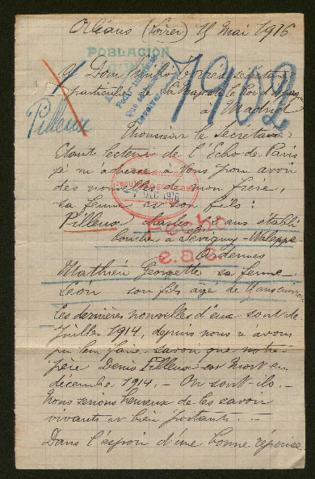 Orléans (Loiret) 15 mai 1916
POBLACIÓN
A Dom Emilio
particulier de Sa Majesté le Roi
à Madrid
7902
Pilleux
Monsieur le Secrétaire
Etant lecteur de l'Echo de Paris
je m'adresse à Vous pour avoir
des nouvelles de mon frère,
sa femme et son fils:
Pilleux ans établi
boucher à Sévigny-Waleppe
Ardennes
Mathieu Georgette sa femme
Léon son fils âgé de
Les dernières nouvelles d'eux sont de
Juillet 1914, depuis nous n'avons
pu leur faire savoir que notre
frère Denis Pilleux est mort en
décembre 1914. - Où sont-ils. -
Nous serions heureux de les savoir
vivants et bien portants. . -
Dans l'espoir d'une bonne réponse